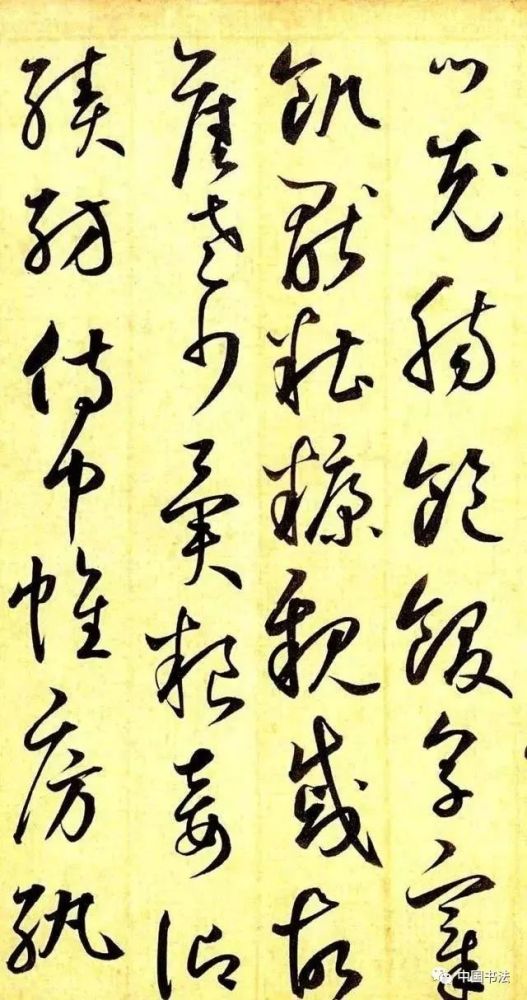 口充腸飽飫烹宰
飢厭糟糠親戚故
舊老少異糧妾御
績紡侍巾帷房紈
中国书法